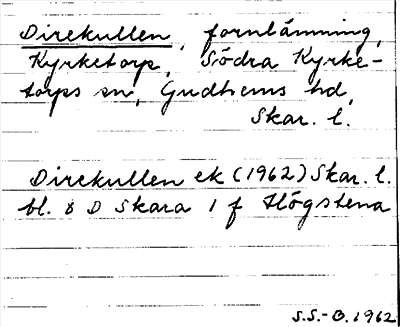 Direkullen, fornlämning,
Kyrketorp, Södra Kyrke-
torps sn, Gudhems hd,
Skar. l.
Direkullen ek (1962) Skar. l.
bl. 8 D Skara 1 f Högstena
S.S.-O. 1962